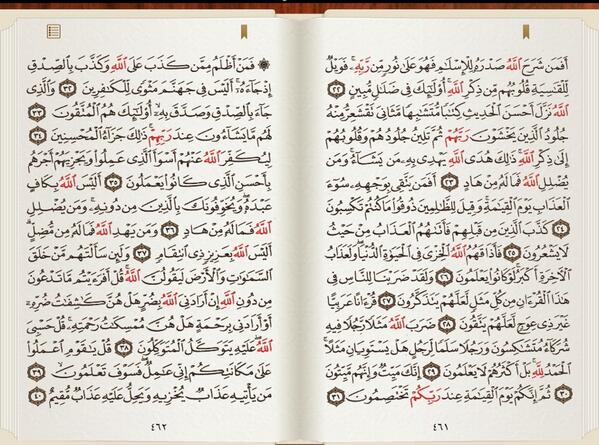 أَفَمَن شَرَحَ ٱللَّهُ صَدْرَهُۥ لِلْإِسْلَٰمِ فَهُوَ عَلَىٰ نُورٍ مِّن رَّبِّهِۦ ۚ فَوَيْلٌ
لِّلْقَٰسِيَةِ قُلُوبُهُم مِّن ذِكْرِ ٱللَّهِ ۚ أُو۟لَٰٓئِكَ فِى ضَلَٰلٍ مُّبِينٍ ٢٢
ٱللَّهُ نَزَّلَ أَحْسَنَ ٱلْحَدِيثِ كِتَٰبًا مُّتَشَٰبِهًا مَّثَانِىَ تَقْشَعِرُّ مِنْهُ
جُلُودُ ٱلَّذِينَ يَخْشَوْنَ رَبَّهُمْ ثُمَّ تَلِينُ جُلُودُهُمْ وَقُلُوبُهُمْ
إِلَىٰ ذِكْرِ ٱللَّهِ ۚ ذَٰلِكَ هُدَى ٱللَّهِ يَهْدِى بِهِۦ مَن يَشَآءُ ۚ وَمَن
يُضْلِلِ ٱللَّهُ فَمَا لَهُۥ مِنْ هَادٍ ٢٣ أَفَمَن يَتَّقِى بِوَجْهِهِۦ سُوٓءَ
ٱلْعَذَابِ يَوْمَ ٱلْقِيَٰمَةِ ۚ وَقِيلَ لِلظَّٰلِمِينَ ذُوقُوا۟ مَا كُنتُمْ تَكْسِبُونَ
٢٤ كَذَّبَ ٱلَّذِينَ مِن قَبْلِهِمْ فَأَتَىٰهُمُ ٱلْعَذَابُ مِنْ حَيْثُ
لَا يَشْعُرُونَ ٢٥ فَأَذَاقَهُمُ ٱللَّهُ ٱلْخِزْىَ فِى ٱلْحَيَوٰةِ ٱلدُّنْيَا ۖ وَلَعَذَابُ
ٱلْءَاخِرَةِ أَكْبَرُ ۚ لَوْ كَانُوا۟ يَعْلَمُونَ ٢٦ وَلَقَدْ ضَرَبْنَا لِلنَّاسِ فِى
هَٰذَا ٱلْقُرْءَانِ مِن كُلِّ مَثَلٍ لَّعَلَّهُمْ يَتَذَكَّرُونَ ٢٧ قُرْءَانًا عَرَبِيًّا
غَيْرَ ذِى عِوَجٍ لَّعَلَّهُمْ يَتَّقُونَ ٢٨ ضَرَبَ ٱللَّهُ مَثَلًا رَّجُلًا فِيهِ
شُرَكَآءُ مُتَشَٰكِسُونَ وَرَجُلًا سَلَمًا لِّرَجُلٍ هَلْ يَسْتَوِيَانِ مَثَلًا ۚ
ٱلْحَمْدُ لِلَّهِ ۚ بَلْ أَكْثَرُهُمْ لَا يَعْلَمُونَ ٢٩ إِنَّكَ مَيِّتٌ وَإِنَّهُم مَّيِّتُونَ
٣٠ ثُمَّ إِنَّكُمْ يَوْمَ ٱلْقِيَٰمَةِ عِندَ رَبِّكُمْ تَخْتَصِمُونَ ٣١
٤٦١
۞ فَمَنْ أَظْلَمُ مِمَّن كَذَبَ عَلَى ٱللَّهِ وَكَذَّبَ بِٱلصِّدْقِ
إِذْ جَآءَهُۥٓ ۚ أَلَيْسَ فِى جَهَنَّمَ مَثْوًى لِّلْكَٰفِرِينَ ٣٢ وَٱلَّذِى
جَآءَ بِٱلصِّدْقِ وَصَدَّقَ بِهِۦٓ ۙ أُو۟لَٰٓئِكَ هُمُ ٱلْمُتَّقُونَ ٣٣
لَهُم مَّا يَشَآءُونَ عِندَ رَبِّهِمْ ۚ ذَٰلِكَ جَزَآءُ ٱلْمُحْسِنِينَ ٣٤
لِيُكَفِّرَ ٱللَّهُ عَنْهُمْ أَسْوَأَ ٱلَّذِى عَمِلُوا۟ وَيَجْزِيَهُمْ أَجْرَهُم
بِأَحْسَنِ ٱلَّذِى كَانُوا۟ يَعْمَلُونَ ٣٥ أَلَيْسَ ٱللَّهُ بِكَافٍ
عَبْدَهُۥ ۖ وَيُخَوِّفُونَكَ بِٱلَّذِينَ مِن دُونِهِۦ ۚ وَمَن يُضْلِلِ
ٱللَّهُ فَمَا لَهُۥ مِنْ هَادٍ ٣٦ وَمَن يَهْدِ ٱللَّهُ فَمَا لَهُۥ مِن مُّضِلٍّ ۗ
أَلَيْسَ ٱللَّهُ بِعَزِيزٍ ذِى ٱنتِقَامٍ ٣٧ وَلَئِن سَأَلْتَهُم مَّنْ خَلَقَ
ٱلسَّمَٰوَٰتِ وَٱلْأَرْضَ لَيَقُولُنَّ ٱللَّهُ ۚ قُلْ أَفَرَءَيْتُم مَّا تَدْعُونَ
مِن دُونِ ٱللَّهِ إِنْ أَرَادَنِىَ ٱللَّهُ بِضُرٍّ هَلْ هُنَّ كَٰشِفَٰتُ ضُرِّهِۦٓ
أَوْ أَرَادَنِى بِرَحْمَةٍ هَلْ هُنَّ مُمْسِكَٰتُ رَحْمَتِهِۦ ۚ قُلْ حَسْبِىَ
ٱللَّهُ ۖ عَلَيْهِ يَتَوَكَّلُ ٱلْمُتَوَكِّلُونَ ٣٨ قُلْ يَٰقَوْمِ ٱعْمَلُوا۟
عَلَىٰ مَكَانَتِكُمْ إِنِّى عَٰمِلٌ ۖ فَسَوْفَ تَعْلَمُونَ ٣٩
مَن يَأْتِيهِ عَذَابٌ يُخْزِيهِ وَيَحِلُّ عَلَيْهِ عَذَابٌ مُّقِيمٌ ٤٠
٤٦٢